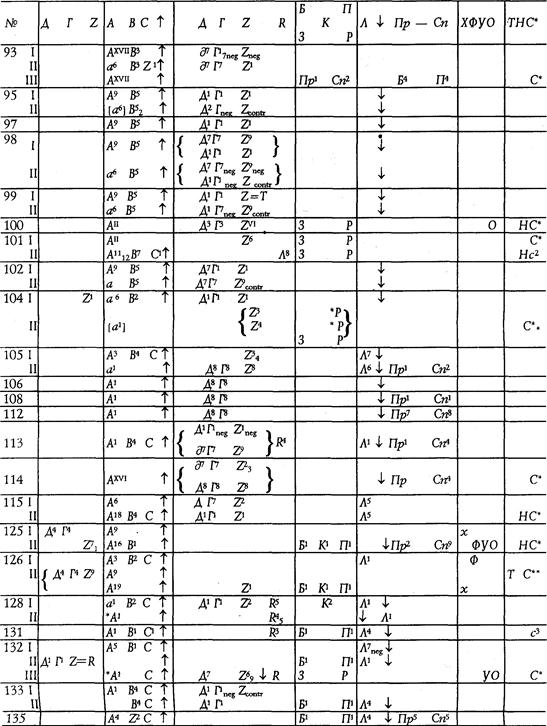 № Д Г Z A B C ↑ Д Г Z R Б П Л ↓ Пр — Сп ХФУО ТНС*
К
З Р
93 I Aˣⱽᴵᴵ B³ ↑ ∂⁷ Г¹₇neg Zneg
II a⁶ B³ Z¹ ↑ ∂⁷ Г⁷ Z¹
III Aˣⱽᴵᴵ ↑ Пр¹ Сп² Б⁴ П⁴ C*
95 I A⁹ B⁵ ↑ Д¹ Г¹ Z¹ ↓
II [a⁶] B⁵₂ ↑ Д² Гneg Zcontr ↓
97 A⁹ B⁵ ↑ Д¹ Г¹ Z¹ ↓
98 { Д⁷ Г⁷ Z⁹ }
I A⁹ B⁵ ↑ Д¹ Г¹ Z¹ ↓
{ Д⁷ Г⁷neg Z⁹neg }
II a⁶ B⁵ ↑ Д¹ Г¹neg Zcontr ↓
99 I A⁹ B⁵ ↑ Д¹ Г¹ Z=T ↓
II a⁶ B⁵ ↑ Д¹ Г⁷neg Z⁹contr ↓
100 Aᴵᴵ Д³ Г³ Zⱽᴵ З Р О НС*
101 I Aᴵᴵ Z⁶ З Р C*
II A¹¹₁₂ B⁷ C¹ ↑ Л⁸ З Р Нс²
102 I A⁹ B⁵ ↑ Д⁷ Г¹ Z¹ ↓
II a B⁵ ↑ Д⁷ Г⁷ Z⁹contr ↓
104 I Z¹ a⁶ B² ↑ Д¹ Г¹ Z¹ ↓
{ Z³ *P }
II [a¹] Z⁴ * P C**
З Р
105 I A³ B⁴ C ↑ Z³₄ Л⁷ ↓
II a¹ ↑ Д⁸ Г⁸ Z⁸ Л⁶ ↓ Пр¹ Сп²
106 A¹ ↑ Д⁸ Г⁸ ↓
108 A¹ ↑ Д⁸ Г⁸ ↓ Пр¹ Сп¹
112 A¹ ↑ Д⁸ Г⁸ ↓ Пр⁷ Сп⁸
{ Д¹ Г¹neg Z¹neg }
113 A¹ B⁴ C ↑ R⁴ Л¹ ↓ Пр¹ Сп⁴
∂⁷ Г⁷ Z⁹
{ ∂⁷ Г⁷ Z²₃ }
114 Aˣⱽᴵ ↑ ↓ Пр Сп⁴ C*
Д⁸ Г⁸ Z⁸
115 I A⁶ ↑ Д Г⁷ Z² Л⁵
II A¹⁸ B⁴ C ↑ Д¹ Г¹ Z¹ Л⁵ НС*
125 I Д⁴ Г⁴ A⁹ ↑ х
II Z⁷₁ A¹⁶ B¹ ↑ Б¹ К¹ П¹ ↓ Пр² Сп⁹ ФУО НС*
126 I A³ B² C ↑ Л¹ Ф
II { Д⁴ Г⁴ Z⁹ A⁹ ↑ Т C**
A¹⁹ ↑ Z¹ Б¹ К¹ П¹ х
128 I a¹ B² C ↑ Д¹ Г¹ Z² R⁵ К² Л¹ ↓
II *A¹ ↑ R⁴₅ ↓ Л¹
131 A¹ B¹ C¹ ↑ R³ Б¹ П¹ Л⁴ ↓ c³
132 I A⁵ B¹ C ↑ Л⁷neg ↓
II Д¹ Г¹ Z=R ↑ Б¹ П¹ Л¹ ↓
III *A¹ C ↑ Д⁷ Z⁸₉ ↓ R З Р УО C*
133 I A¹ B⁴ C ↑ Д¹ Г¹neg Zcontr
II B⁴ C ↑ Д¹ Г¹ Б П¹ Л⁴ ↓
135 A⁴ Z² C ↑ Б¹ П¹ Л⁴ ↓ Пр⁵ Сп⁵